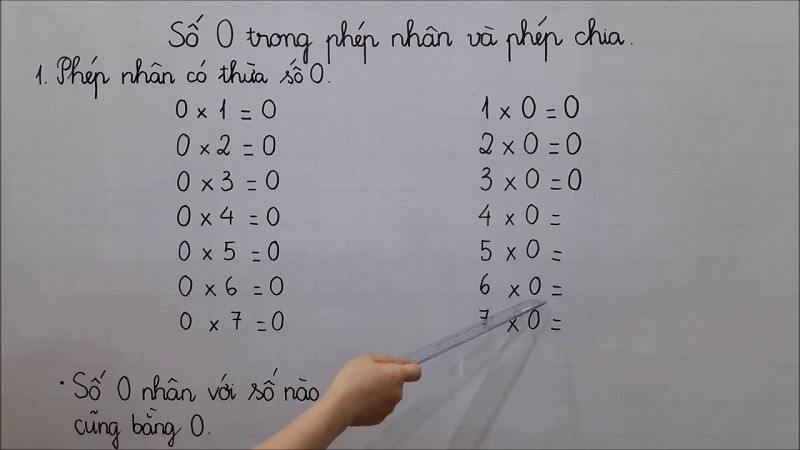 Số 0 trong phép nhân và phép chia.
1. Phép nhân có thừa số 0.
0 x 1 = 0
0 x 2 = 0
0 x 3 = 0
0 x 4 = 0
0 x 5 = 0
0 x 6 = 0
0 x 7 = 0
1 x 0 = 0
2 x 0 = 0
3 x 0 = 0
4 x 0 =
5 x 0 =
6 x 0 =
7 x 0 =
• Số 0 nhân với số nào
cũng bằng 0.